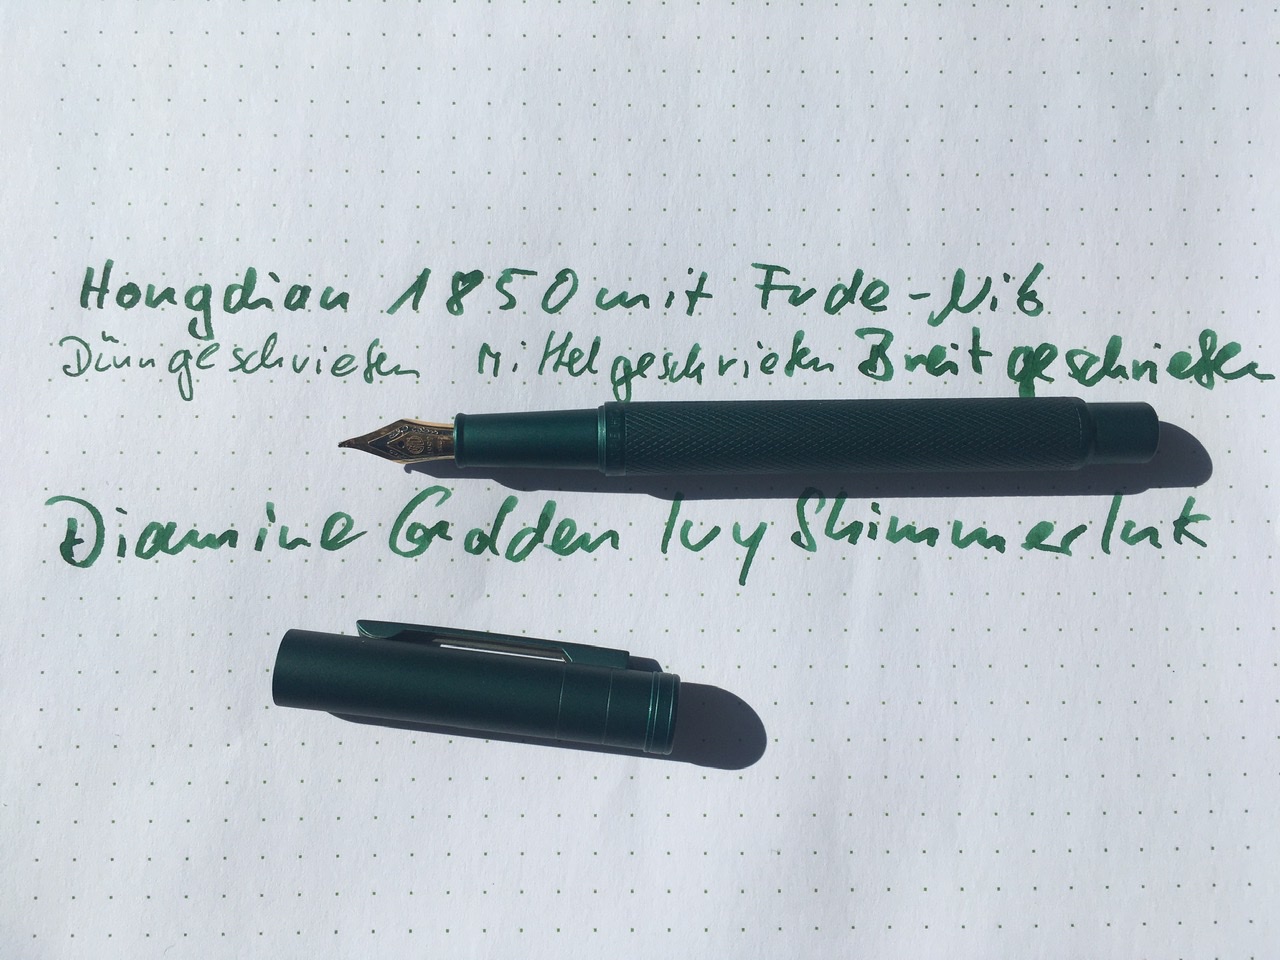 Hongdian 1850 mit Fude-Nib
Dünn geschrieben Mittel geschrieben Breit geschrieben
Diamine Golden Ivy Shimmer Ink